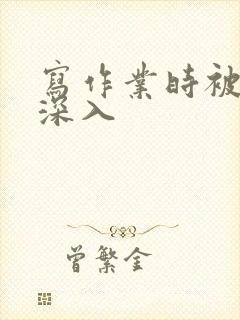 寫作業時被
深入
曾繁金